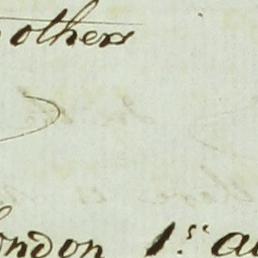 others
London 1st au